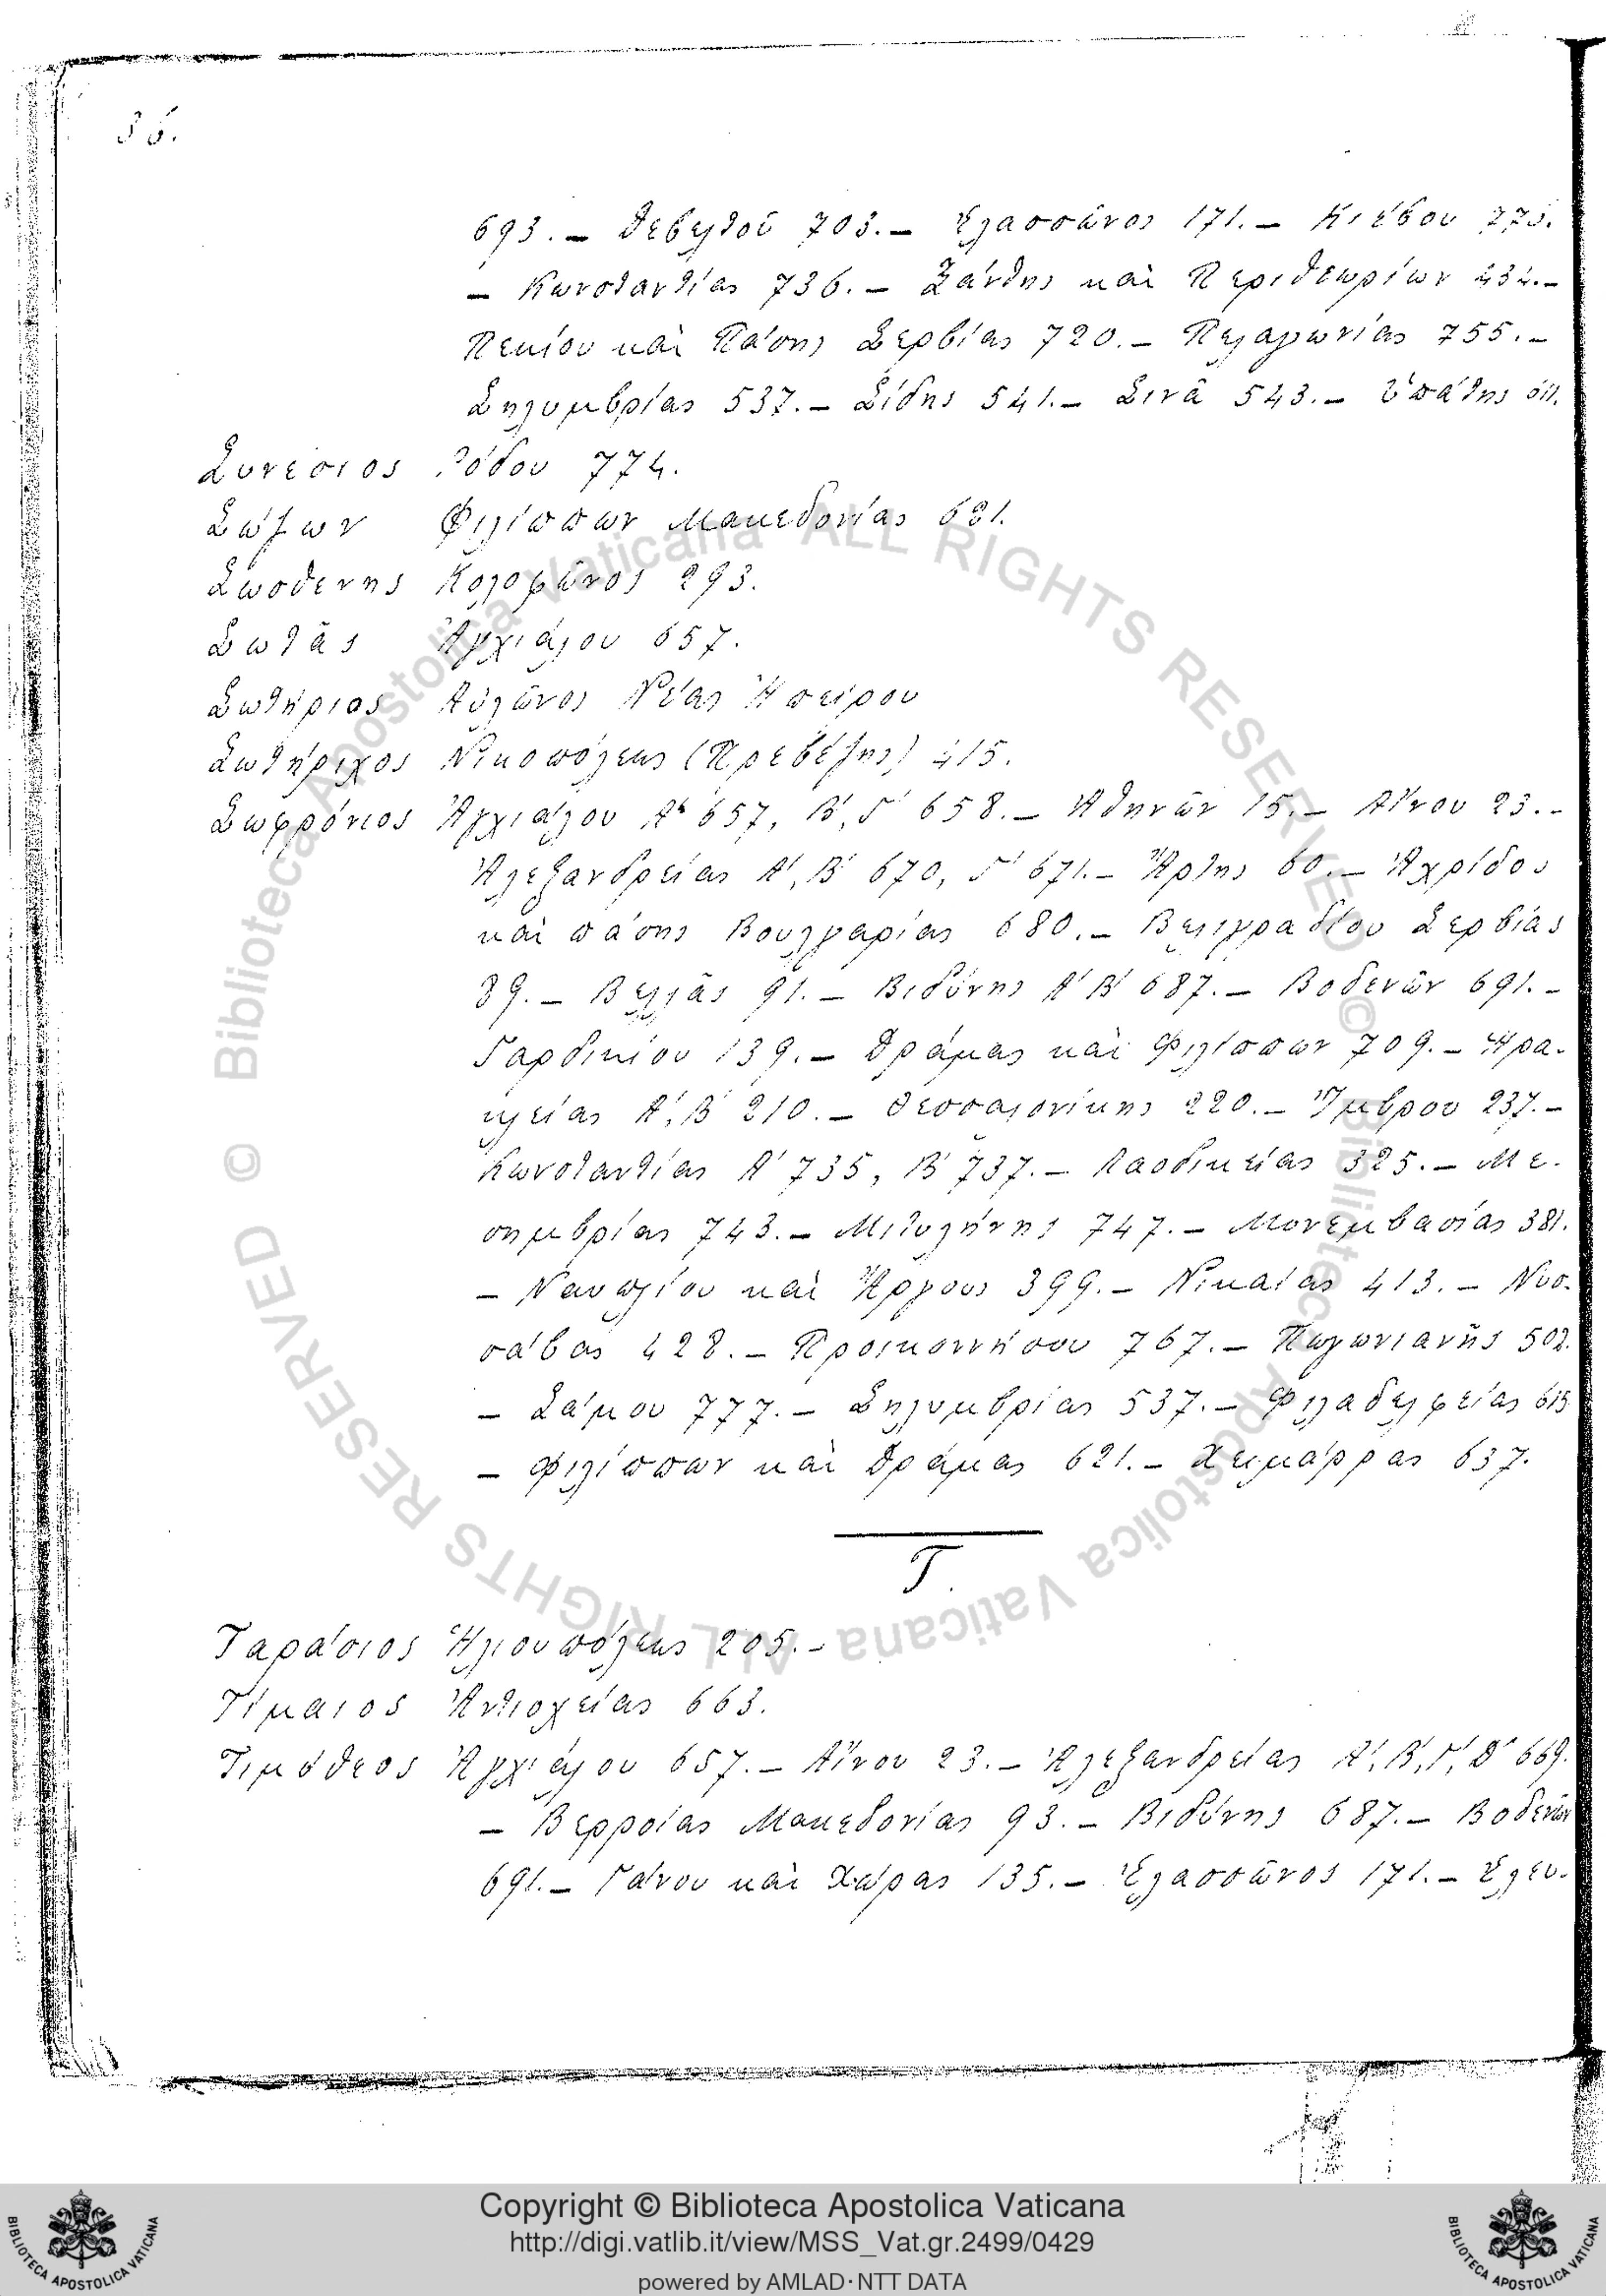 36.
693. – Δεβελτοῦ 703. – Ἐλασσῶνος 171. – Κιέβου 773.
– Κωνσταντίας 736. – Ξάνθης καὶ Περιθεωρίων 434. –
Πεκίου καὶ Πάσης Σερβίας 720. – Πελαγωνίας 755. –
Σηλυμβρίας 537. – Σίδης 541. – Σινᾶ 543. – Ὑπάτης
Συνέσιος Ῥόδου 774.
Σώζων Φιλίππων Μακεδονίας 621.
Σωσθενης Κολοφῶνος 293.
Σωτᾶς Ἀγχιάλου 657.
Σωτήριος Αὐλῶνος Νέας Ἠπείρου
Σωτήριχος Νικοπόλεως (Πρεβέζης) 415.
Σωφρόνιος Ἀγχιάλου Α' 657, Β', Γ' 658. – Ἀθηνῶν 15. – Αἴνου 23. –
Ἀλεξανδρείας Α', Β' 670, Γ' 671. – Ἄρτης 60. – Ἀχρίδος
καὶ πάσης Βουλγαρίας 680. – Βελιγραδίου Σερβίας
89. – Βελλᾶς 91. – Βιδύνης Α' Β' 687. – Βοδενῶν 691. –
Γαρδικίου 139. – Δράμας καὶ Φιλίππων 709. – Ἡρα-
κλείας Α', Β' 210. – Θεσσαλονίκης 220. – Ἴμβρου 237. –
Κωνσταντίας Α' 735, Β' 737. – Λαοδικείας 325. – Με-
σημβρίας 743. – Μιτυλήνης 747. – Μονεμβασίας 381.
– Ναυπλίου καὶ Ἄργους 399. – Νικαίας 413. – Νυσ-
σάβας 428. – Προικοννήσου 767. – Πωγωνιανῆς 502.
– Σάμου 777. – Σηλυμβρίας 537. – Φιλαδελφείας 615
– Φιλίππων καὶ Δράμας 621. – Χειμάρρας 637.
Τ.
Ταράσιος Ἡλιουπόλεως 205. –
Τίμαιος Ἀντιοχείας 663.
Τιμόθεος Ἀγχιάλου 657. – Αἴνου 23. – Ἀλεξανδρείας Α', Β', Γ', Δ' 669.
– Βερροίας Μακεδονίας 93. – Βιδύνης 687. – Βοδενῶν
691. – Γάνου καὶ Χώρας 135. – Ἐλασσῶνος 171. – Ἐλευ-
© Biblioteca Apostolica Vaticana ALL RIGHTS RESERVED © Biblioteca Apostolica Vaticana ALL RIGHTS RESERVED
Copyright © Biblioteca Apostolica Vaticana
http://digi.vatlib.it/view/MSS_Vat.gr.2499/0429
powered by AMLAD·NTT DATA
BIBLIOTECA APOSTOLICA VATICANA
BIBLIOTECA APOSTOLICA VATICANA